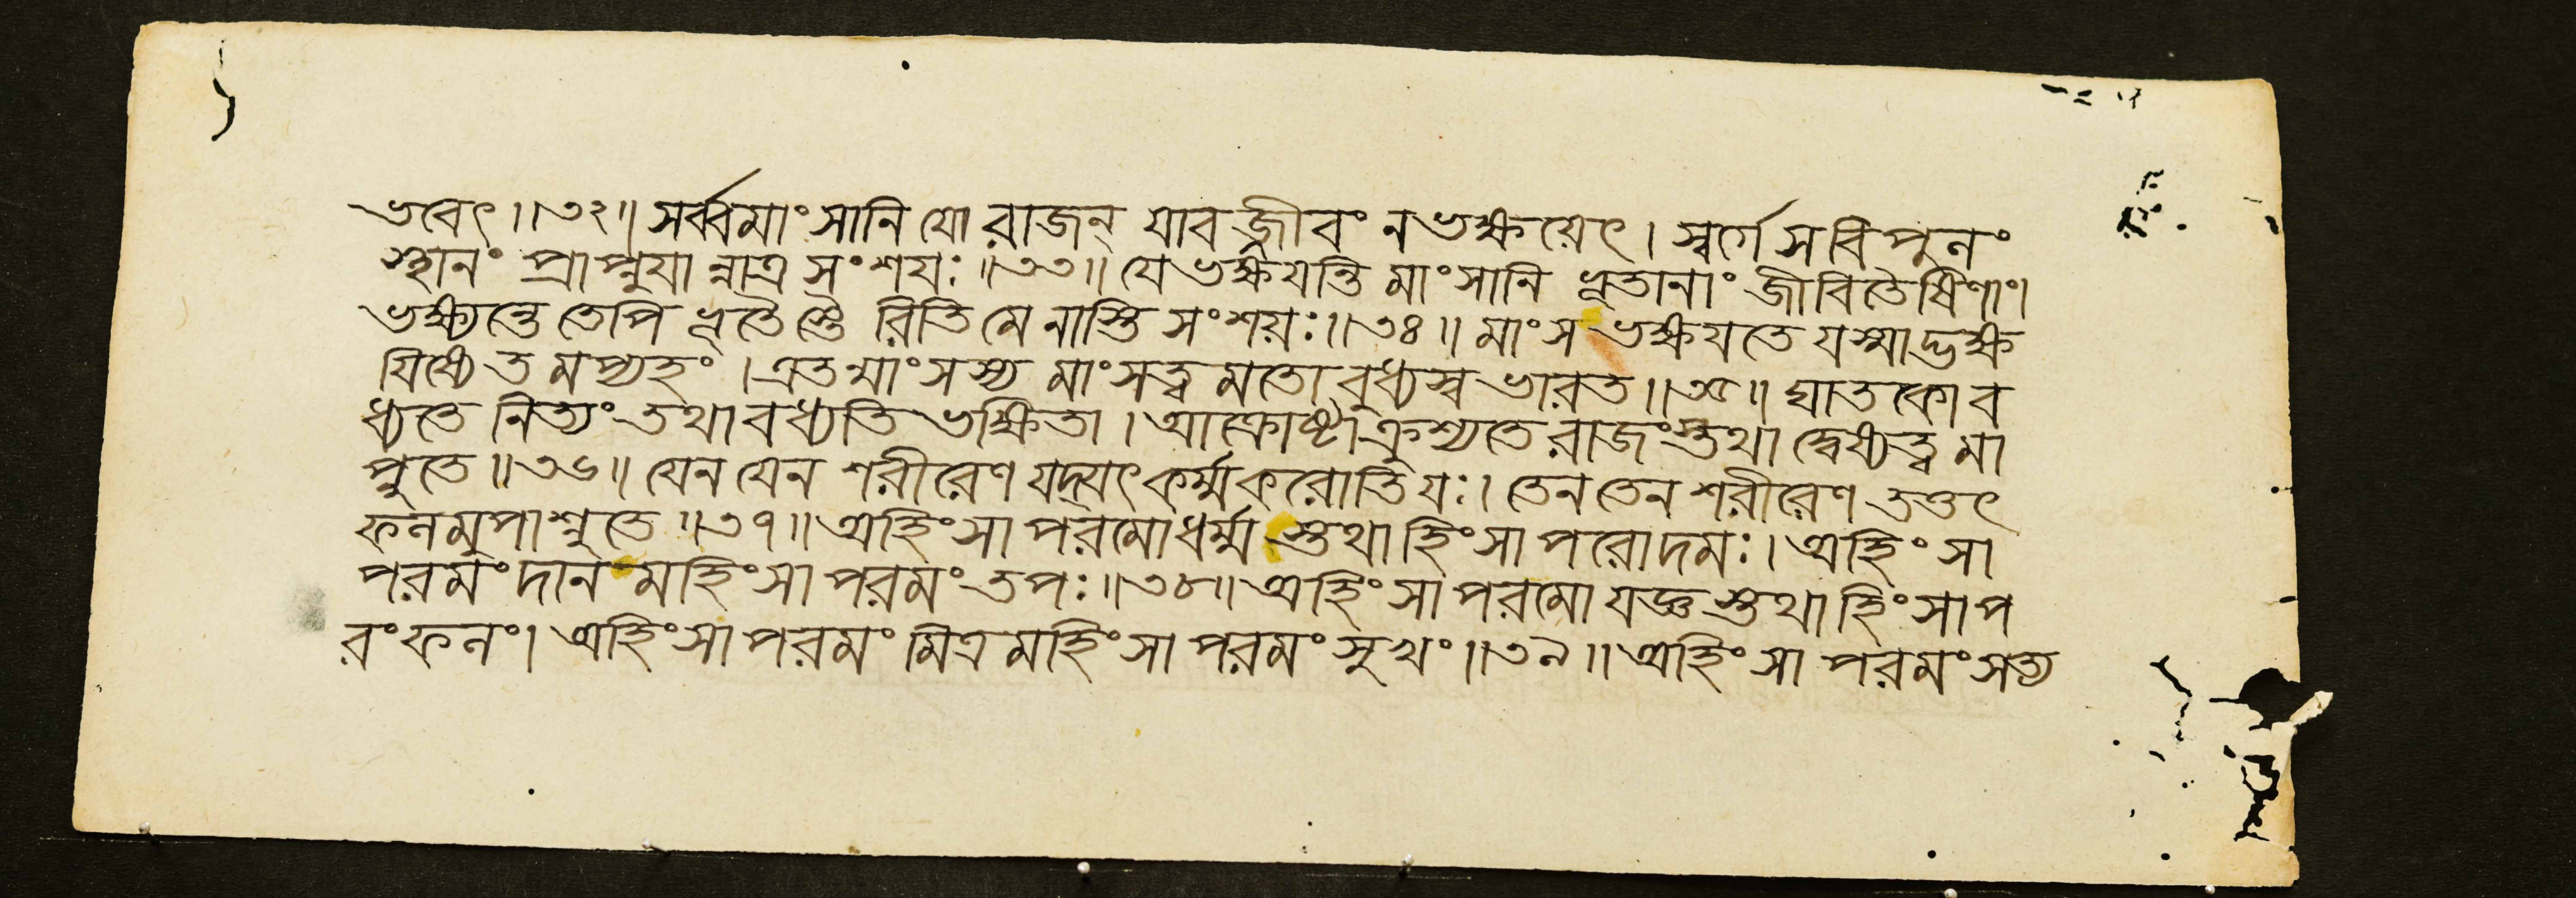 ভবেৎ ॥৩২॥ সর্ব্বমাংসানি যো রাজন্ যাবজ্জীবং ন ভক্ষয়েৎ । স্বর্গে স বিপুলং
স্থানং প্রাপ্নুয়ান্নাত্র সংশয়ঃ ॥৩৩॥ যে ভক্ষয়ন্তি মাংসানি ভূতানাং জীবিতৈষিণাং।
ভক্ষ্যন্তে তেপি ভূতৈস্তৈ রিতি মে নাস্তি সংশয়ঃ ॥৩৪॥ মাং স ভক্ষয়তে যস্মাদ্ভক্ষ
য়িষ্যে তমপ্যহং । এতন্মাংসস্য মাংসত্বমতো বুধ্যস্ব ভারত ॥৩৫॥ ঘাতকো ব
ধ্যতে নিত্যং তথা বধ্যতি ভক্ষিতা । আক্রোষ্টা ক্রুশ্যতে রাজংস্তথা দ্বেষ্যত্বমা
প্নুতে ॥৩৬॥ যেন যেন শরীরেণ যদ্যৎ কর্ম্ম করোতি যঃ। তেন তেন শরীরেণ তত্তৎ
ফলমুপাশ্নুতে ॥৩৭॥ অহিংসা পরমোধর্ম্ম স্তথাহিংসা পরোদমঃ। অহিংসা
পরমং দান মহিংসা পরমং তপঃ ॥৩৮॥ অহিংসা পরমো যজ্ঞ স্তথাহিংসা প
রং ফলং। অহিংসা পরমং মিত্র মহিংসা পরমং সুখং ॥৩৯॥ অহিংসা পরমং সত্য